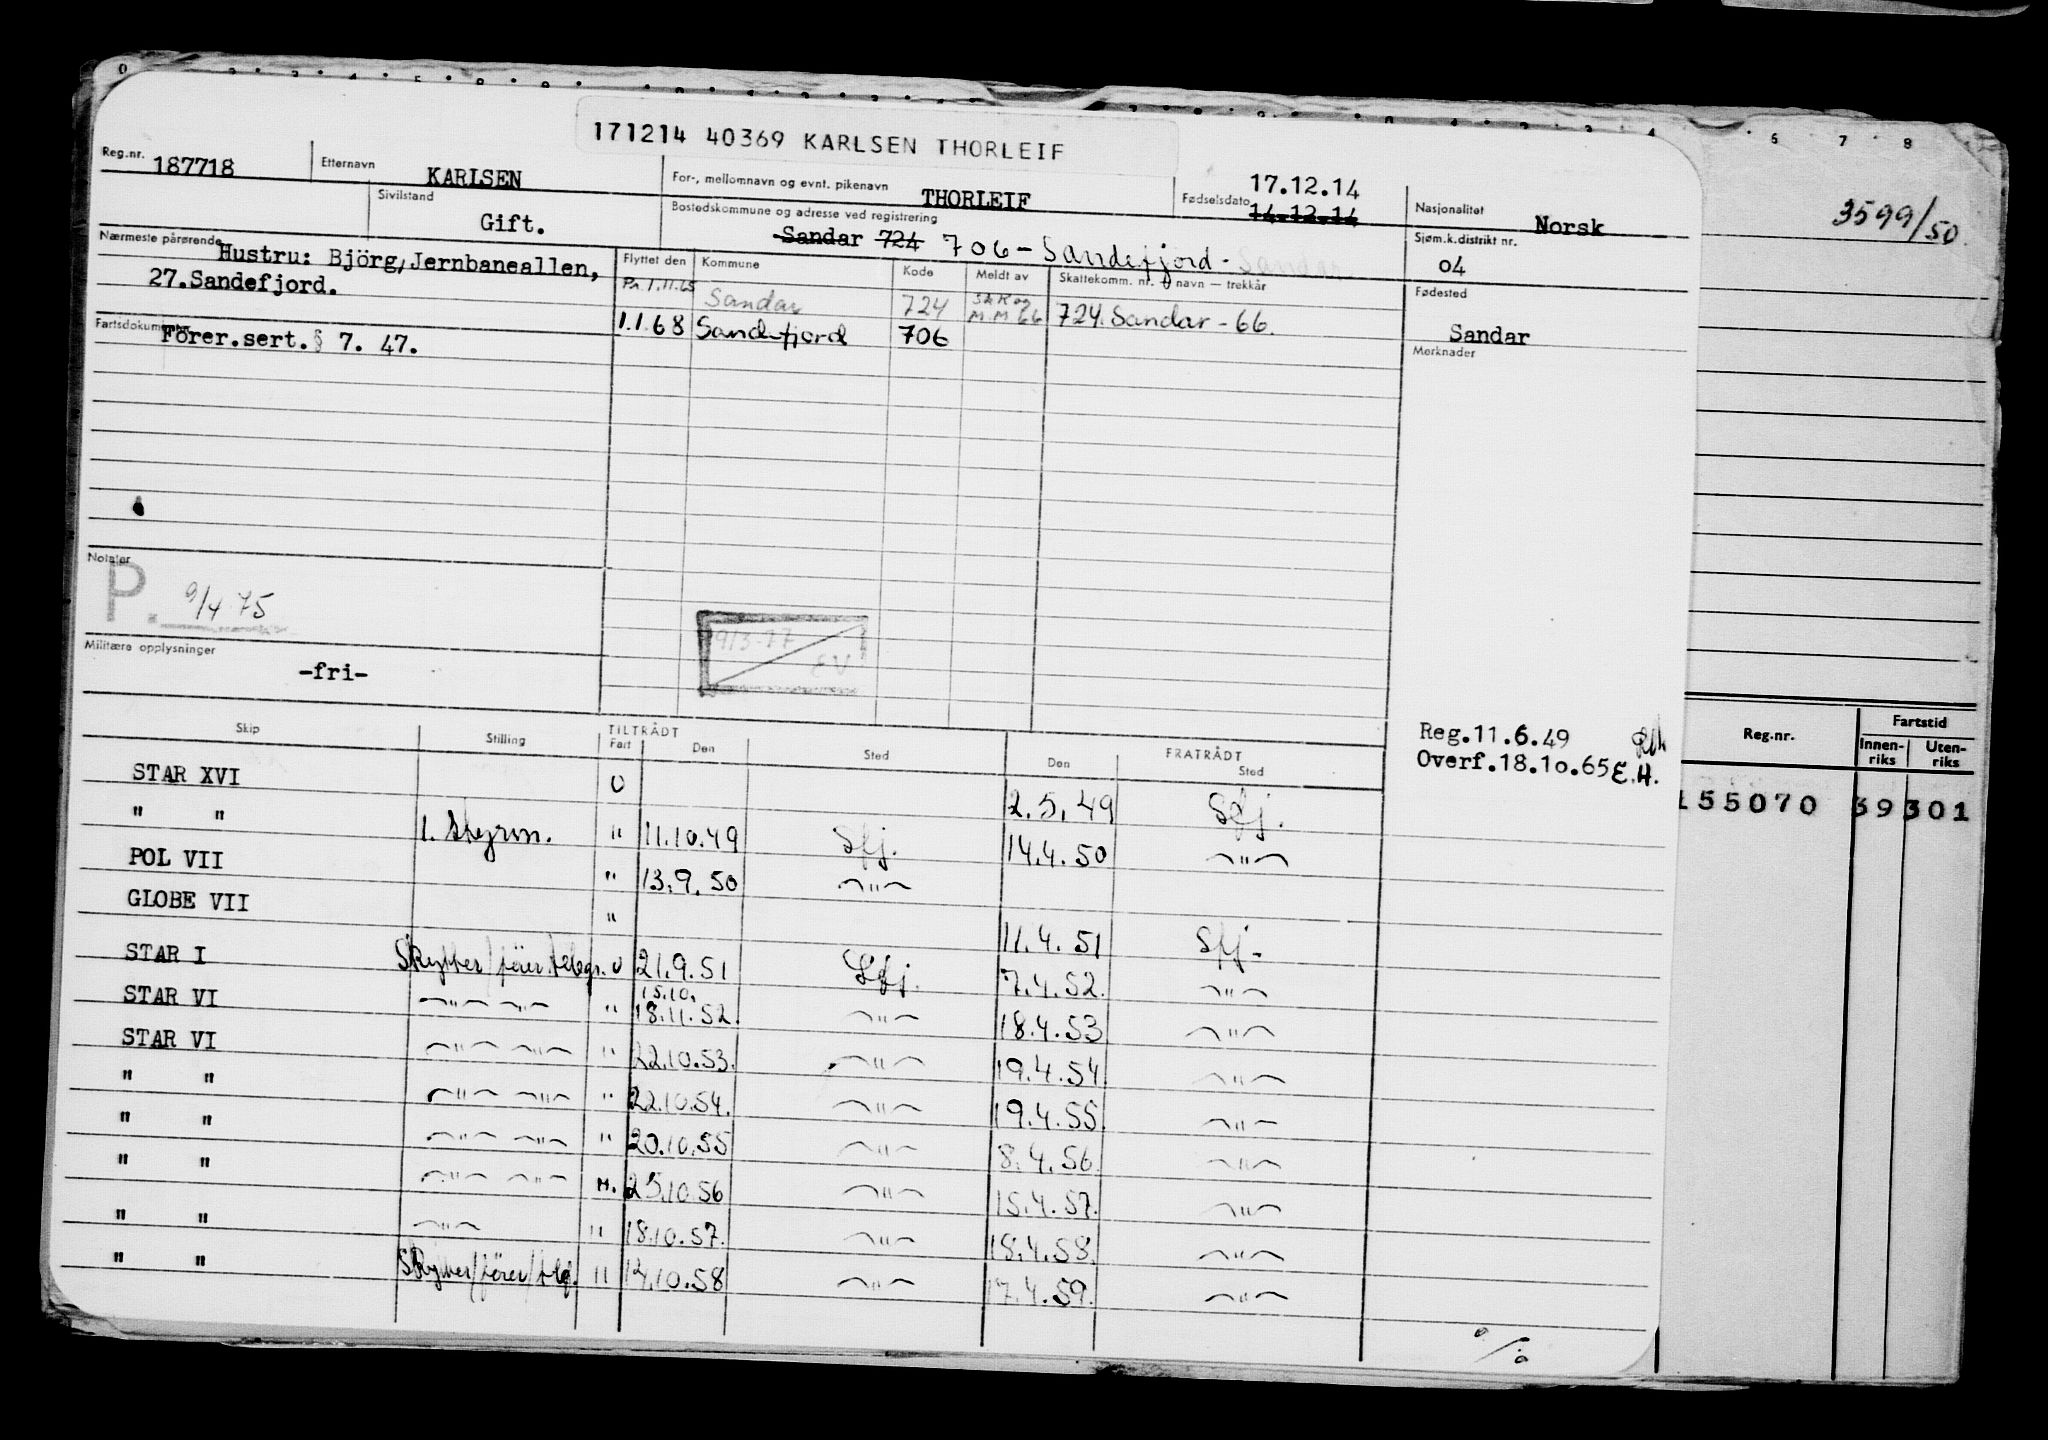 171214 40369 KARLSEN THORLEIF
Reg.nr. 187718 Etternavn KARLSEN For-, mellomnavn og evnt. pikenavn THORLEIF Fødselsdato 17.12.14 14.12.14 Nasjonalitet Norsk
3599/50
Sivilstand Gift. Bostedskommune og adresse ved registrering Sandar 724 706 - Sandefjord - Sandar Sjøm.k.distrikt nr. 04
Nærmeste pårørende Hustru: Björg, Jernbaneallen,
27.Sandefjord.
Flyttet den Kommune Kode Meldt av Skattekomm. nr. og navn — trekkår Fødested Sandar
Pr. 1.11.65 Sandar 724 M.M. 66 724. Sandar - 66.
1.1.68 Sandefjord 706
Fartsdokumenter Förer.sert.§ 7. 47.
Merknader
Notater
P. 9/4 75
9/3-77 EV
Militære opplysninger
-fri-
Reg.11.6.49
Overf.18.10.65 E.H.
Reg.nr. Fartstid
Innen-riks Uten-riks
155070 39 301
Skip Stilling TILTRÅDT Fart Den Sted FRATRÅDT Den Sted
STAR XVI U 2.5.49 Sfj.
" " 1. Styrm. " 11.10.49 Sfj. 14.4.50 -"-
POL VII " 13.9.50 -"-
GLOBE VII " 11.4.51 Sfj.
STAR I Skytter/fører/telegr. U 21.9.51 Sfj. 7.4.52. -"-
15.10.
STAR VI -"- -"- " 18.11.52. -"- 18.4.53 -"-
STAR VI -"- -"- " 22.10.53. -"- 19.4.54 -"-
" " -"- -"- " 22.10.54. -"- 19.4.55 -"-
" " -"- -"- " 20.10.55 -"- 8.4.56 -"-
" " -"- -"- ". 25.10.56 -"- 15.4.57. -"-
" " -"- " 18.10.57. -"- 18.4.58. -"-
" " Skytter/fører/tlg. " 14.10.58 -"- 17.4.59. -"-